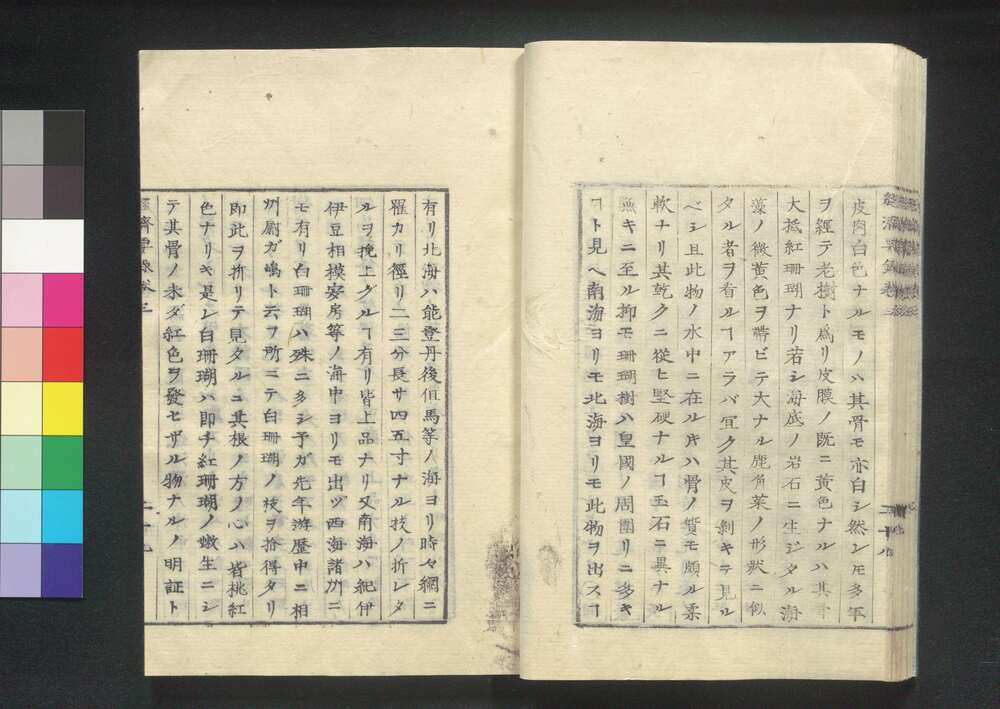 皮肉白色ナルモノハ其骨モ亦白シ然レモ多年
ヲ經テ老樹ト爲リ皮膜ノ既ニ黃色ナルハ其
大抵紅珊瑚ナリ若シ海底ノ岩石ニ生ジタル海
藻ノ微黃色ヲ帶ビテ大ナル鹿角菜ノ形狀ニ似
タル者ヲ看ルヿアラバ冝ク其皮ヲ剝キテ見ル
ベシ且此物ノ水中ニ在ルキハ骨ノ質モ頗ル柔
軟ナリ其乾クニ從ヒ堅硬ナルヿ玉石ニ異ナル
無キニ至ル抑モ珊瑚樹ハ皇國ノ周圍リニ多キ
ヿト見ヘ南海ヨリモ北海ヨリモ此物ヲ出スヿ
二十八
有リ北海ハ能登丹後伹馬等ノ海ヨリ時々綱ニ
羅カリ徑リ二三分長サ四五寸ナル技ノ折レタ
ルヲ挽上グルヿ有リ皆上品ナリ又南海ハ紀伊
伊豆相摸安房等ノ海中ヨリモ出ヅ西海諸州ニ
モ有リ白珊瑚ハ殊ニ多シ予ガ先年游歷中ニ相
州廟ガ嶋ト云フ所ニテ白珊瑚ノ枝ヲ拾得タリ
即此ヲ折リテ見タルニ其根ノ方ノ心ハ皆桃紅
色ナリキ是レ白珊瑚ハ即チ紅珊瑚ノ嫩生ニシ
テ其骨ノ未ダ紅色ヲ發セザル物ナルノ明証ト